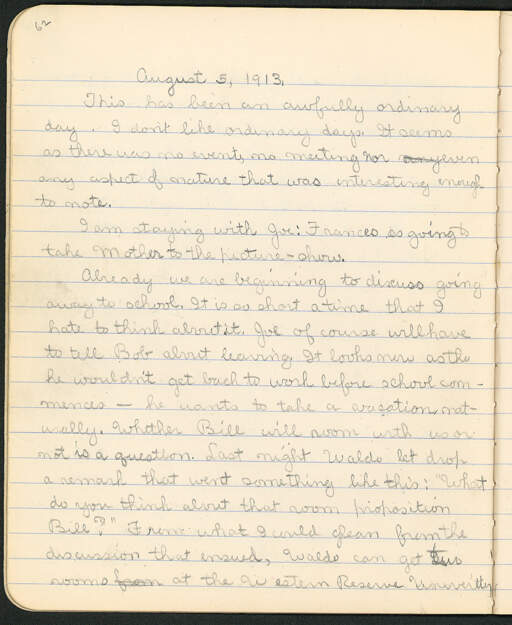 62
August 5, 1913.
This has been an awfully ordinary
day. I don't like ordinary days. It seems
as there was no event, no meeting nor any even
any aspect of nature that was interesting enough
to note.
I am staying with Joe: Frances is going to
take Mother to the picture-show.
Already we are beginning to discuss going
away to school. It is so short a time that I
hate to think about it. Joe of course will have
to tell Bob about leaving. It looks now as tho
he wouldn't get back to work before school com-
mences — he wants to take a vacation, nat-
urally. Whether Bill will room with us or
not is a question. Last night Waldo let drop
a remark that went something like this: "What
do you think about that room proposition
Bill?" From what I could glean from the
discussion that ensued, Waldo can get two
rooms from at the Western Reserve University